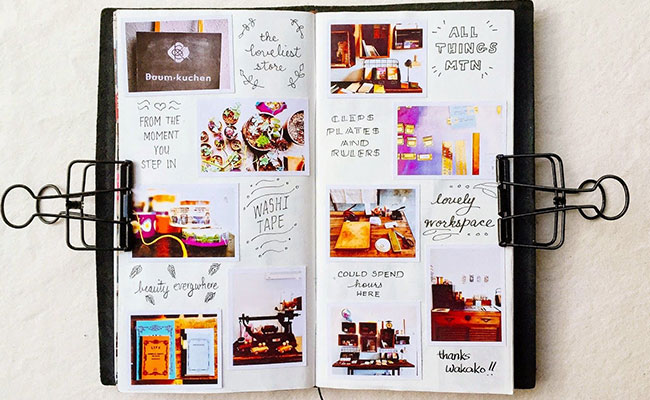 Baum-kuchen
the
loveliest
store
FROM THE
MOMENT
YOU
STEP IN
WASHI
TAPE
beauty everywhere
LIFE
ALL
THINGS
MTN
CLIPS
PLATES
AND
RULERS
lovely
workspace
COULD SPEND
hours
HERE
thanks
wakako!!